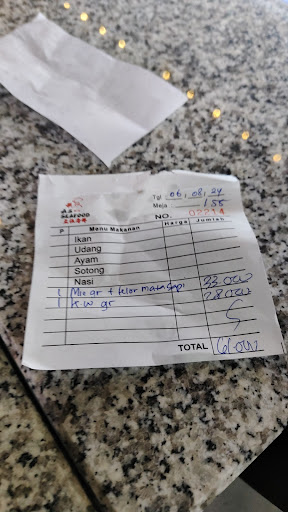 SEAFOOD
Tgl 06, 08, 24
Meja 155
NO. 02214
P Menu Makanan Harga Jumlah
Ikan
Udang
Ayam
Sotong
Nasi
1 Mie gr + telor mata sapi 33.000
1 K.W gr 28.000
TOTAL 61.000